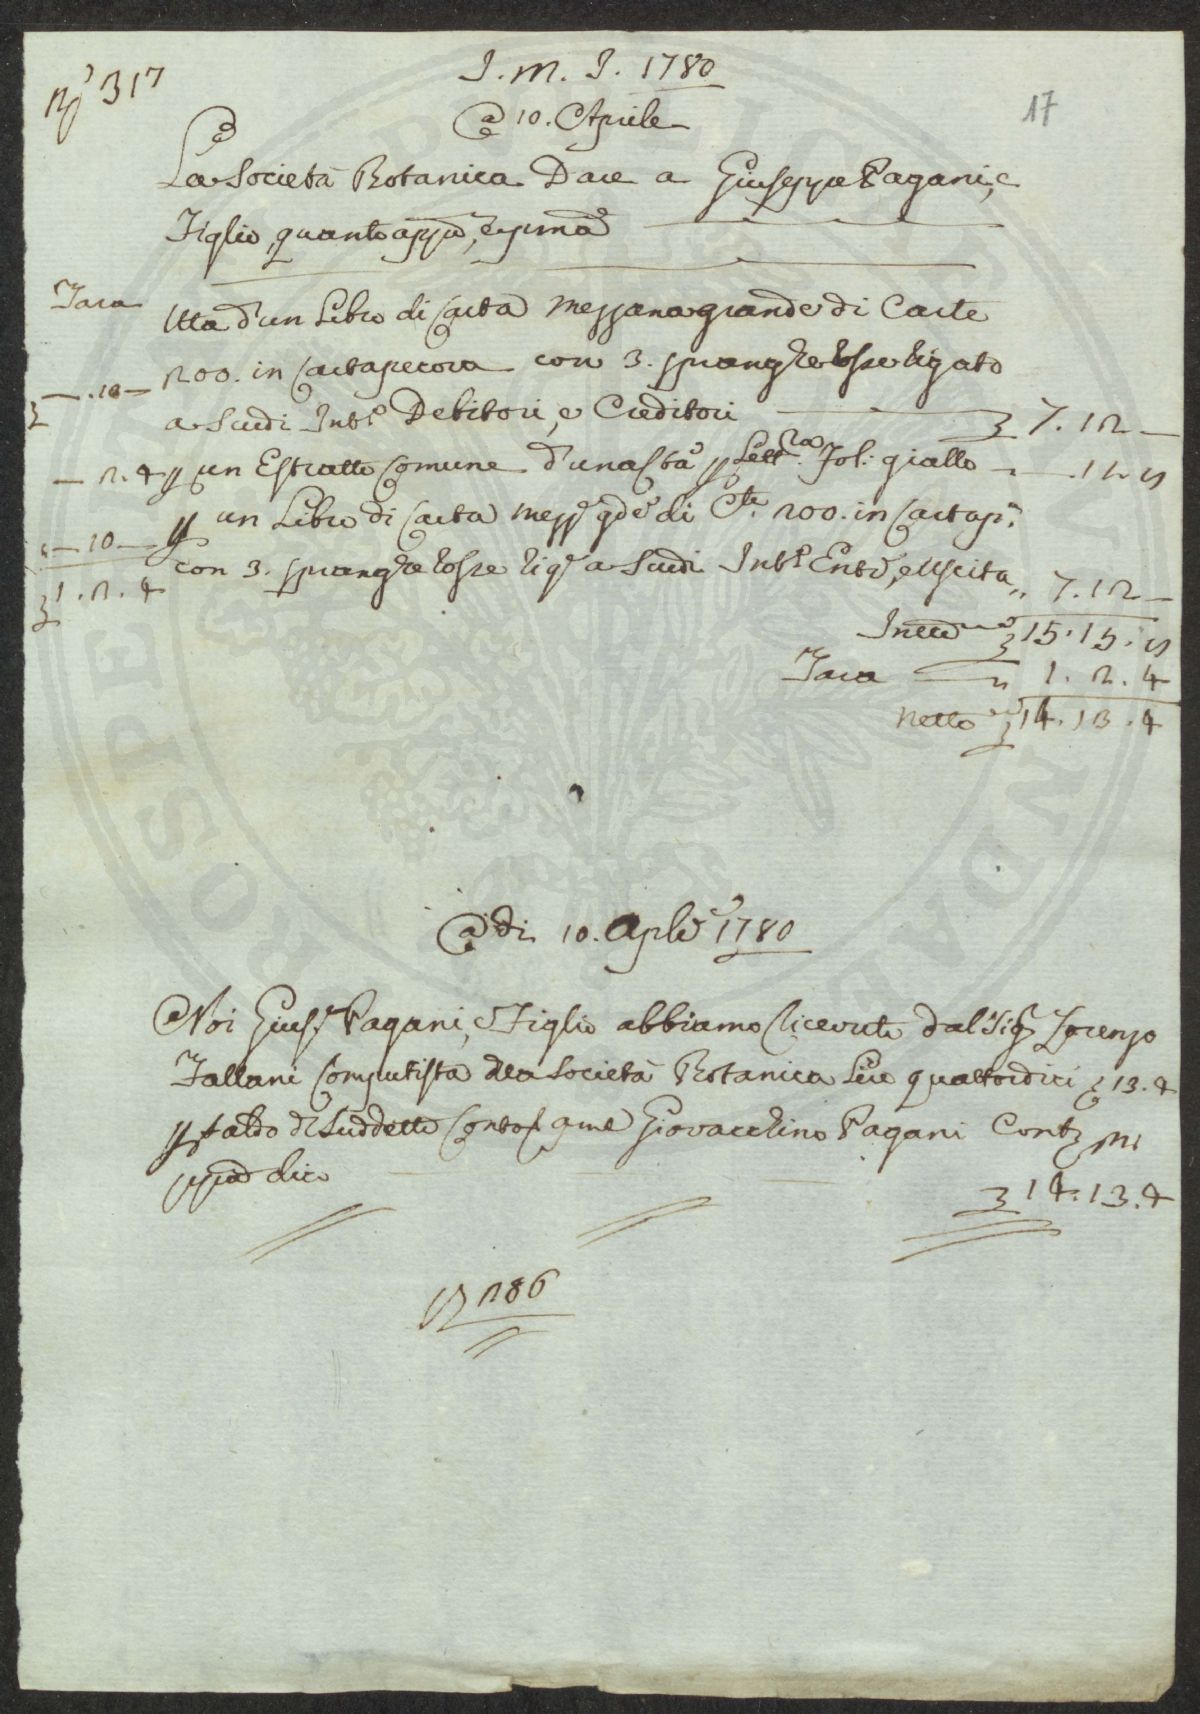 N° 317
J. M. J. 1780
A 10. Aprile
17
La Società Botanica Dare a Giuseppe Pagani, e
Figlio, quanto app°, e prima
Tara
Vtta d'un Libro di Carta Mezzana grande di Carte
200. in Cartapecora con 3. spranghe rosse ligato
— .10 —
a Scudi Int° Debitori, e Creditori 7. 12 —
— 2. 4 p un Estratto Comune d'una Sta p Lett.ra fol: giallo — . 12 8
p un Libro di Carta Mezz° gde di Cte. 200. in Cartap.a
— 10 —
con 3. spranghe rosse lig° a Scudi Int° Ent°, e Uscita „ 7. 12 —
1. 2. 4
In tutto 15. 15. 8
Tara 1. 2. 4
Netto 14. 13. 4
A di 10. Aple 1780
Noi Gius.e Pagani, e Figlio abbiamo ricevuto dal Sig.r Lorenzo
Fallani Computista dla Società Botanica Lire quattordici 13. 4
p saldo dl Suddetto Conto Giovacchino Pagani Cont
pp° dico
14. 13. 4
286